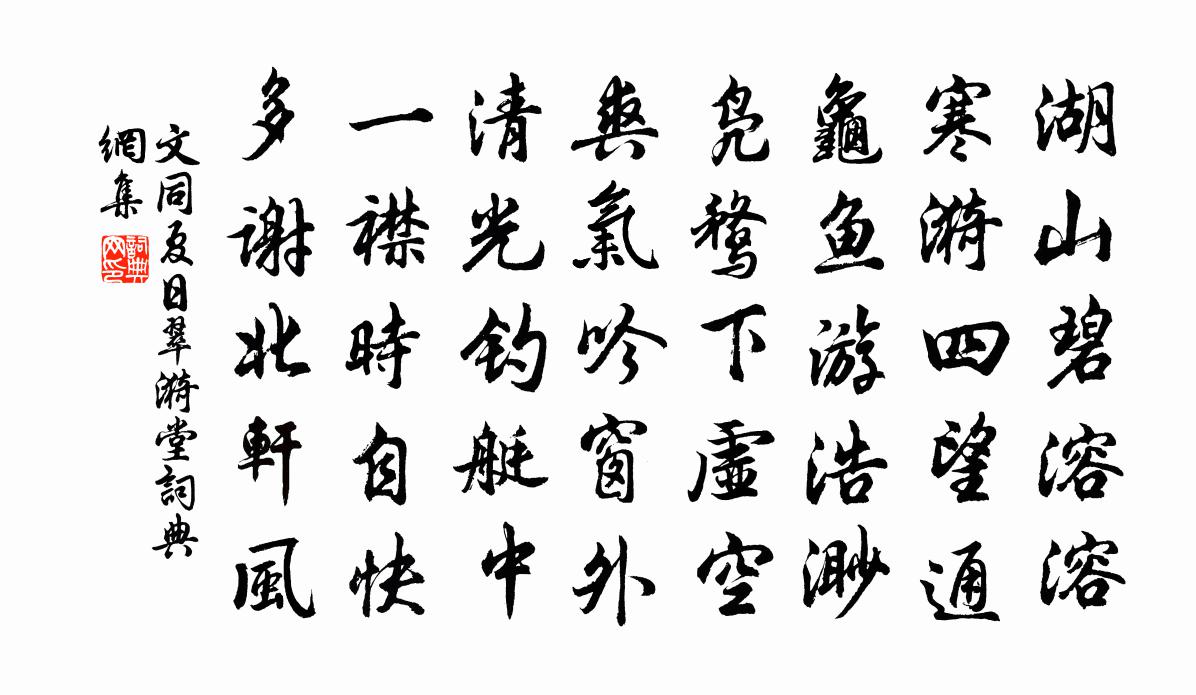 湖山碧溶溶
寒漪四望通
龜魚游浩渺
鳧鶩下虛空
爽氣吟窗外
清光釣艇中
一襟時自快
多謝北軒風
文同夏日翠漪堂詞典
網集
詞典网印